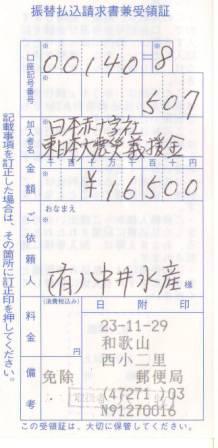 振替払込請求書兼受領証
口座記号番号
00140-8
507
加入者名
日本赤十字社
東日本大震災義援金
金額
千百十万千百十円
¥16500
ご依頼人
おなまえ
(有)中井水産
様
料金
(消費税込み)
円
日附印
23-11-29
和歌山
西小二里
郵便局
(47271)03
N91270016
備考
免除
この受領証は、大切に保管してください。
記載事項を訂正した場合は、その箇所に訂正印を押してください。